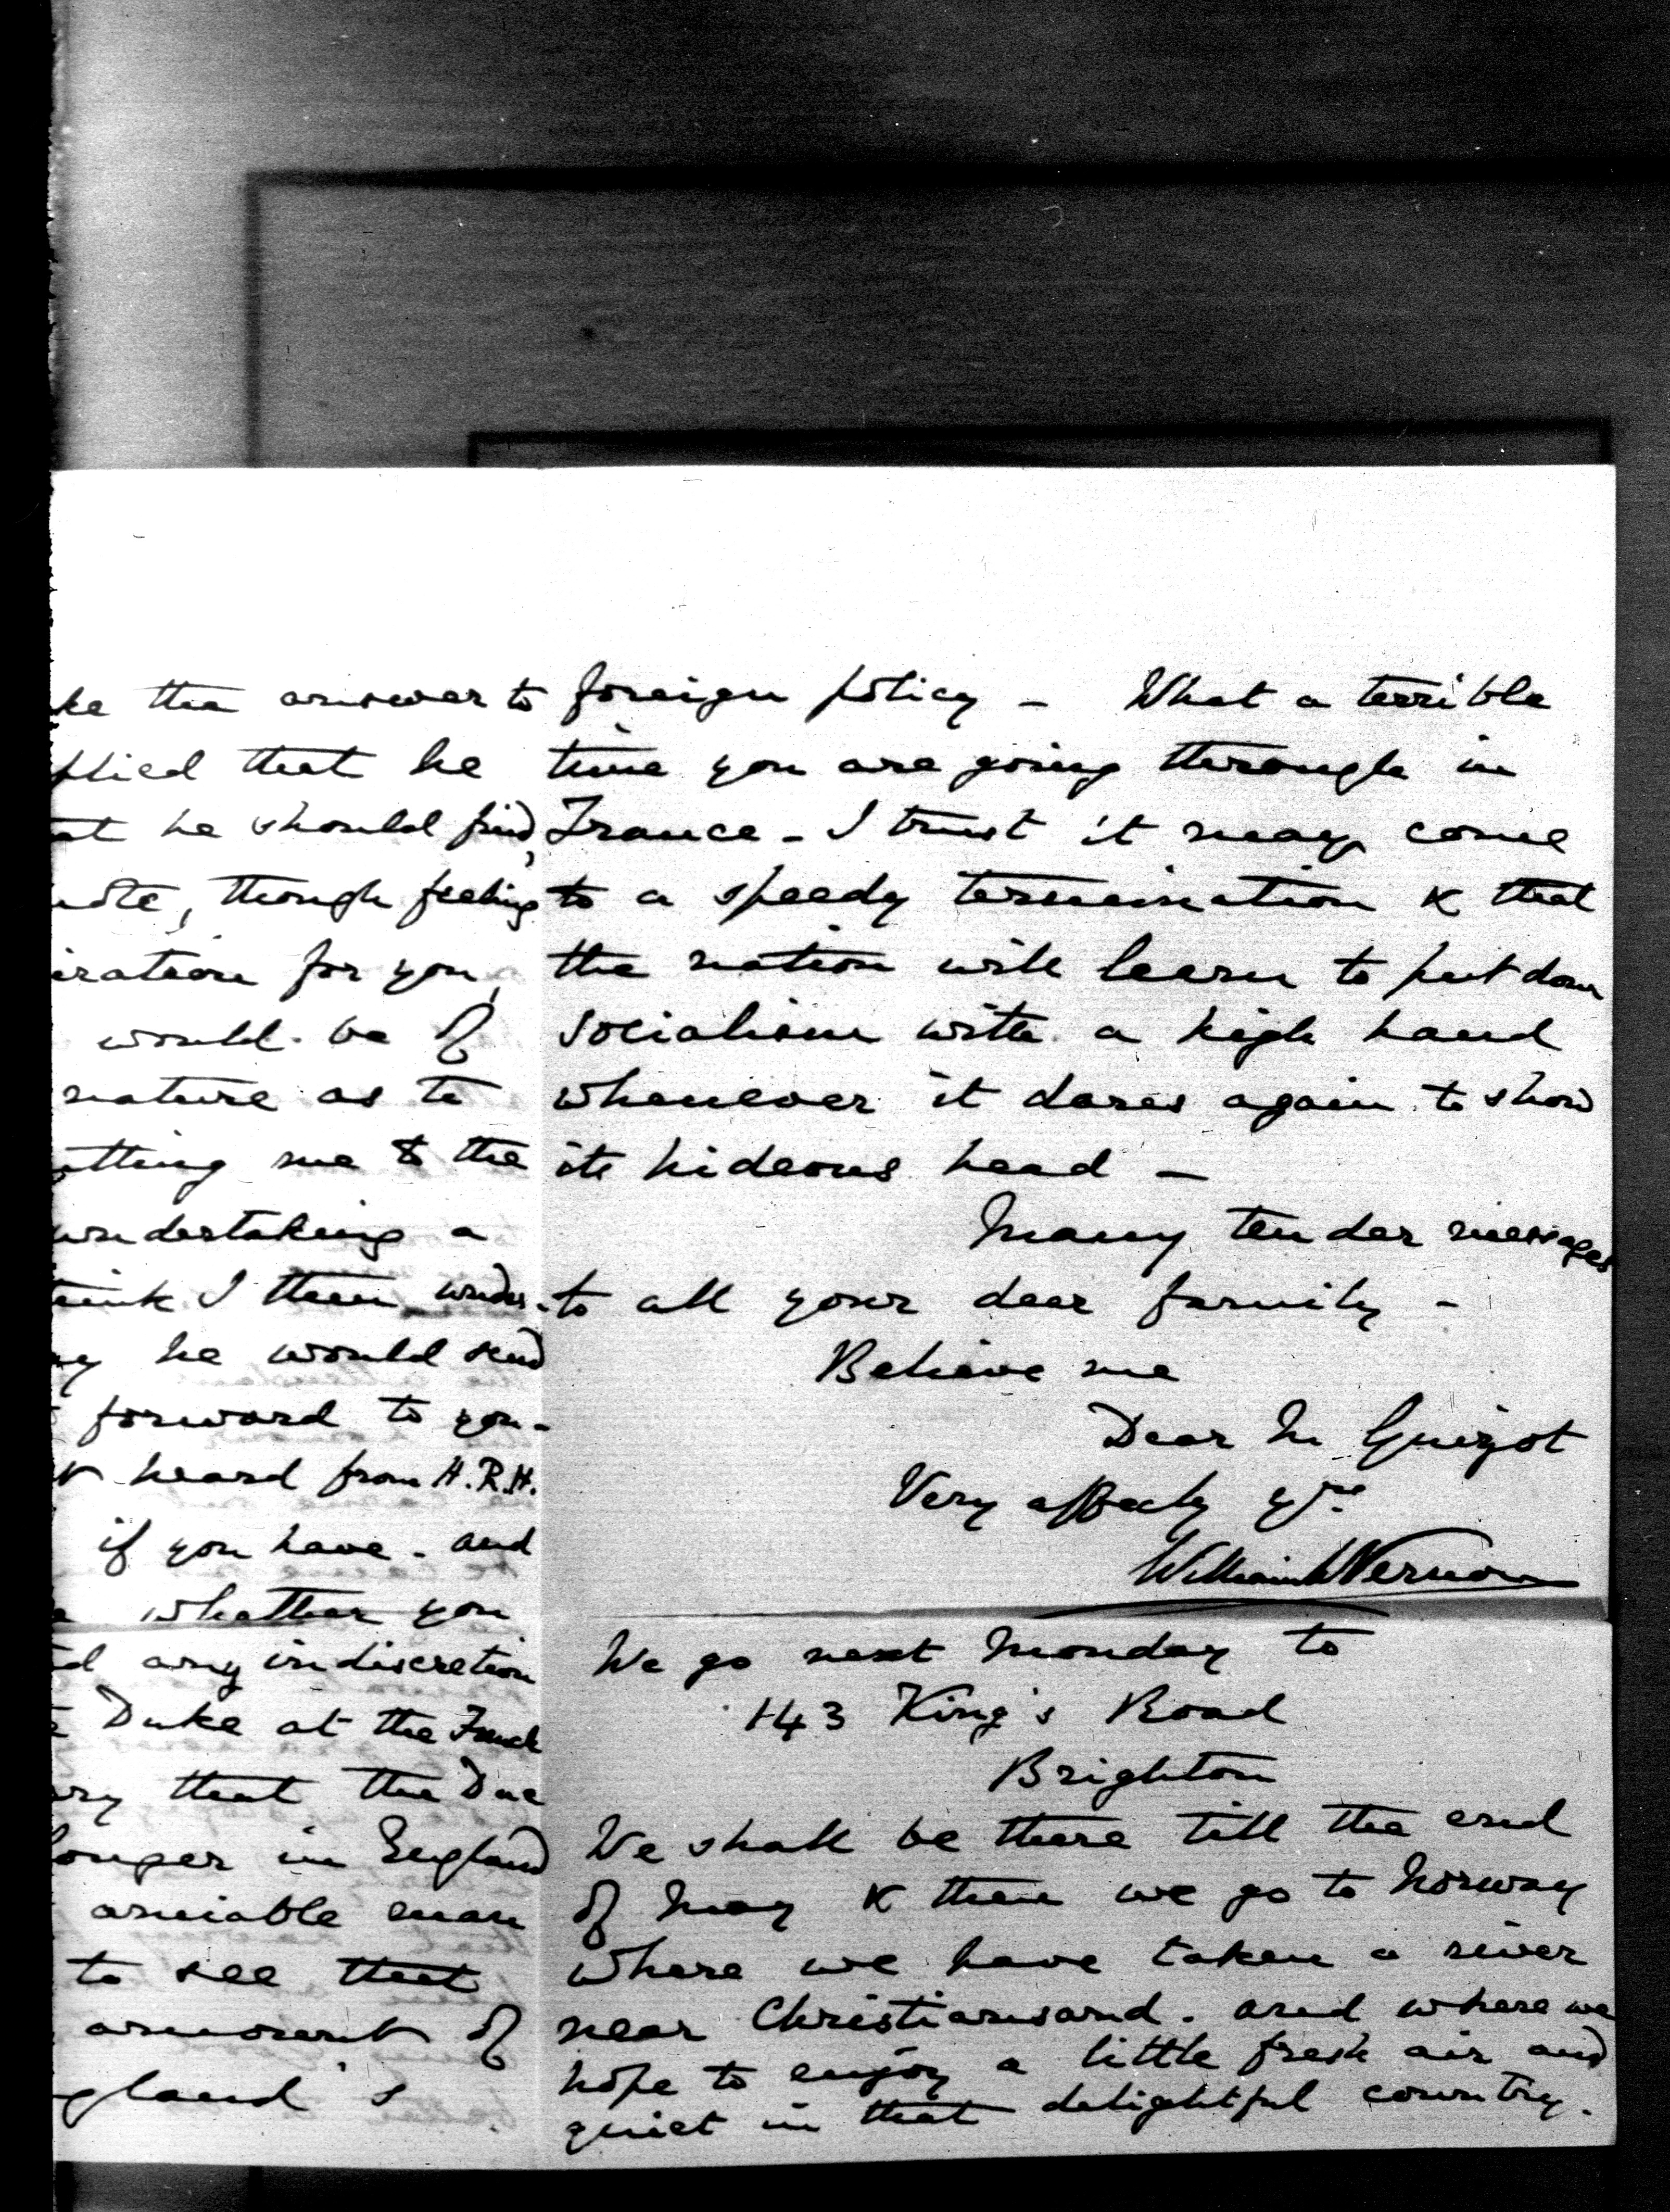 the answer to
that he
he should find,
though feeling
for you,
would be of
nature as to
me to the
undertaking a
I then under-
he would send
forward to you -
heard from H.R.H.
if you have - and
whether you
any indiscretion
Duke at the French
that the Duc
in England
amiable man
to see that
of
foreign policy - What a terrible
time you are going through in
France - I trust it may come
to a speedy termination & that
the nation will learn to put down
socialism with a high hand
whenever it dares again to show
its hideous head -
Many tender messages
to all your dear family -
Believe me
Dear M Guizot
Very affectly yrs
William W Vernon
We go next Monday to
143 King's Road
Brighton
We shall be there till the end
of May & then we go to Norway
where we have taken a river
near Christiansand. and where we
hope to enjoy a little fresh air and
quiet in that delightful country.